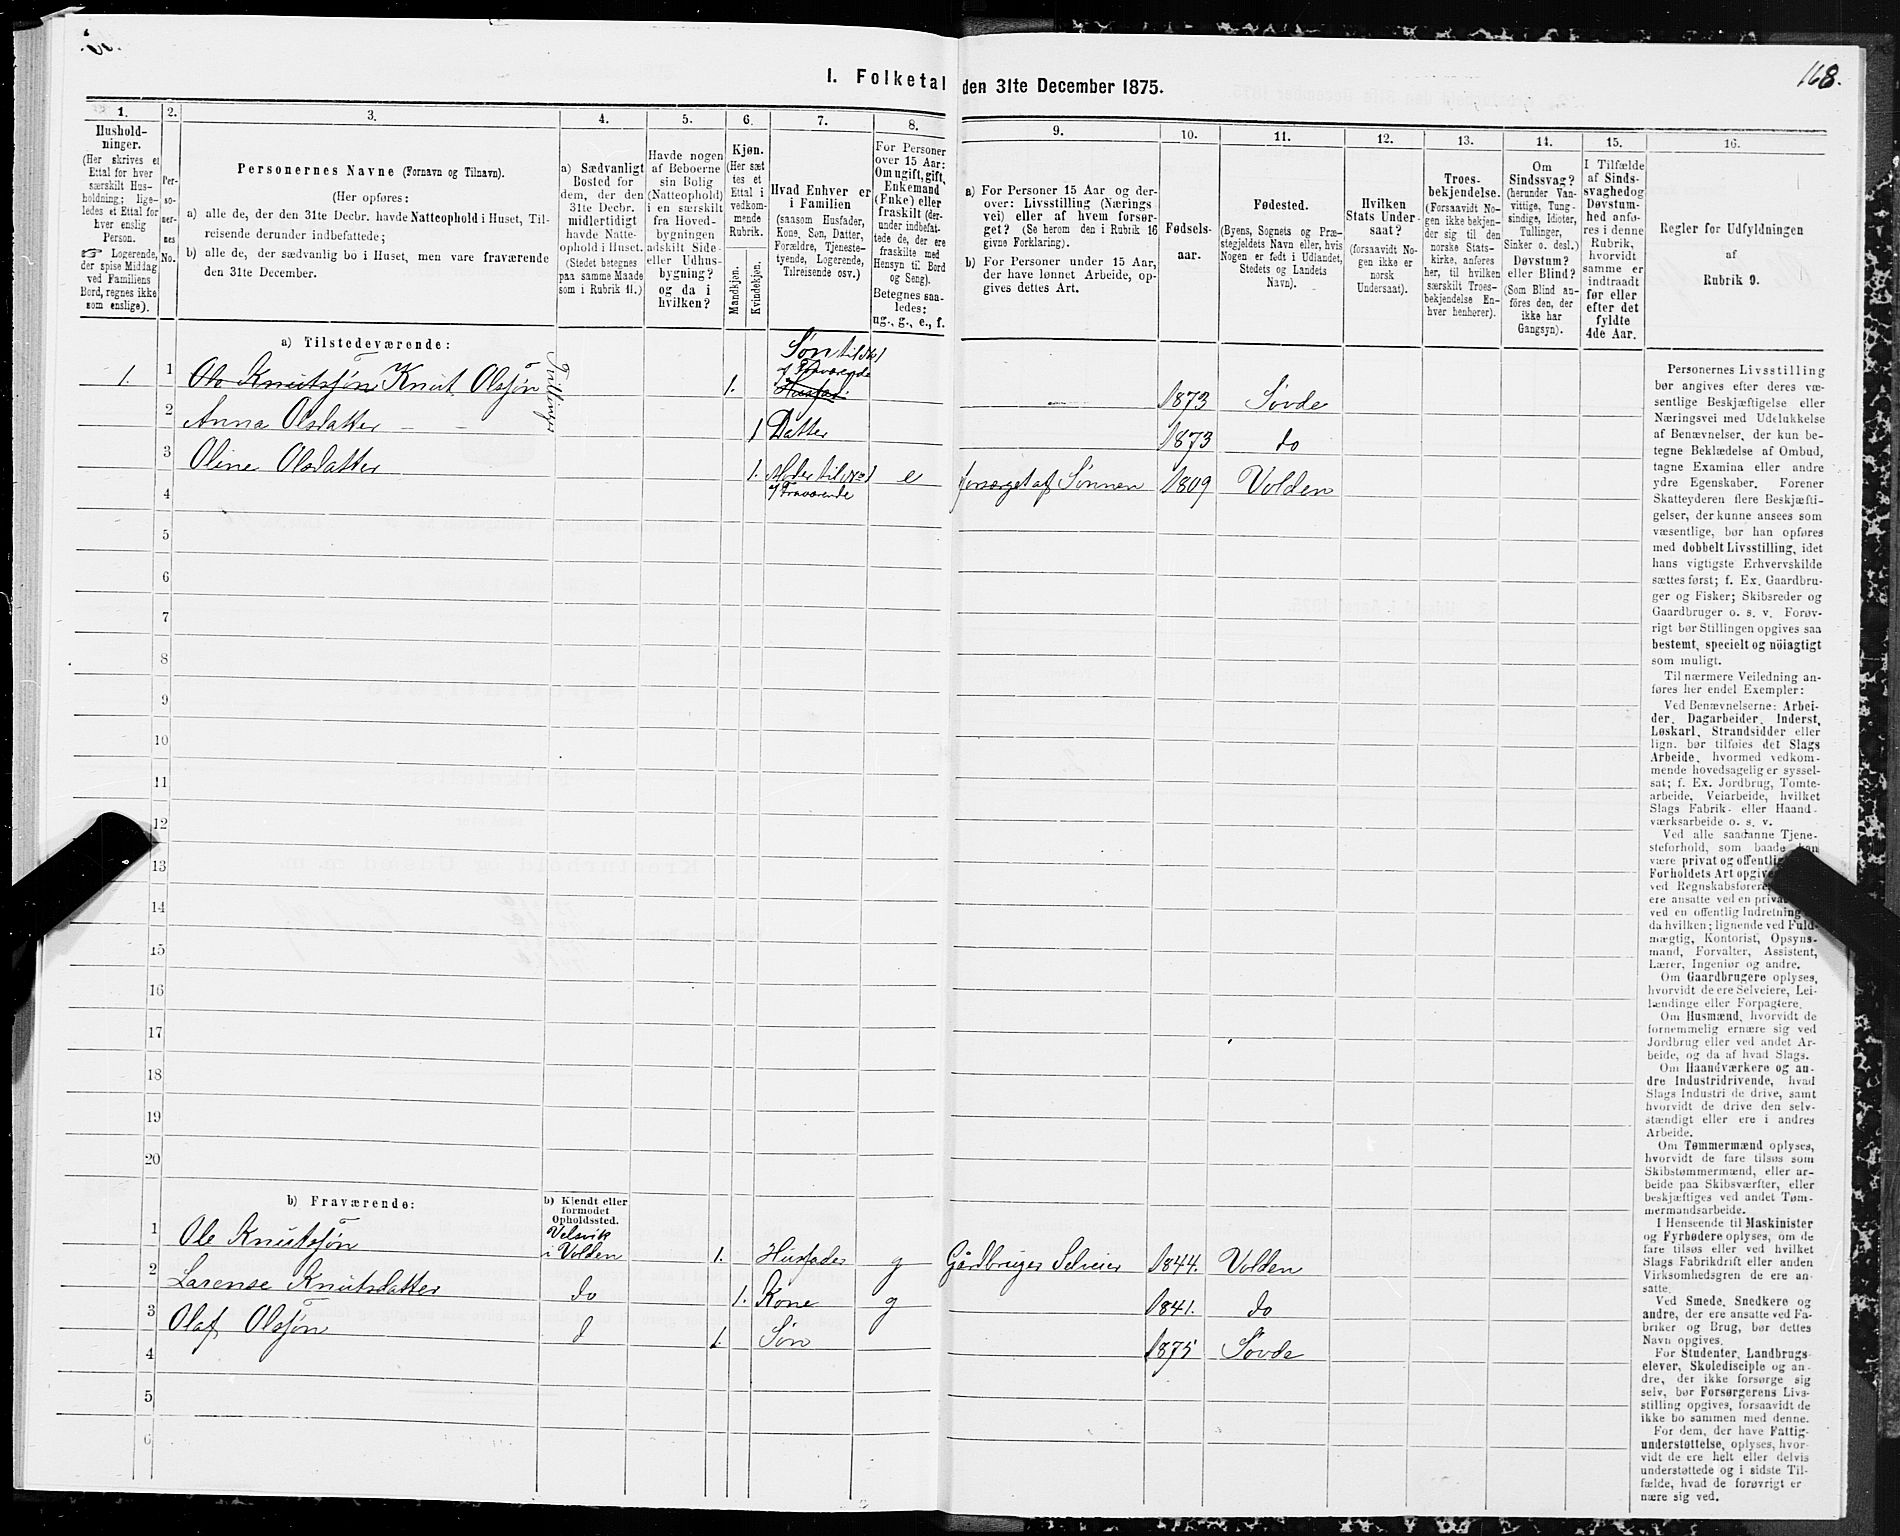 I. Folketal den 31te December 1875.
168.
1.
2.
3.
4.
5.
6.
7.
8.
9.
10.
11.
12.
13.
14.
15.
16.
Hushold-
ninger.
(Her skrives et
Ettal for hver
særskilt Hus-
holdning; lige-
ledes et Ettal for
hver enslig
Person.
☞ Logerende,
der spise Middag
ved Familiens
Bord, regnes ikke
som enslige).
Per-
so-
ner-
nes
No.
Personernes Navne (Fornavn og Tilnavn).
(Her opføres:
a) alle de, der den 31te Decbr. havde Natteophold i Huset, Til-
reisende derunder indbefattede;
b) alle de, der sædvanlig bo i Huset, men vare fraværende
den 31te December.
a) Sædvanligt
Bosted for
dem, der den
31te Decbr.
midlertidigt
havde Natte-
ophold i Huset.
(Stedet betegnes
paa samme Maade
som i Rubrik 11.)
Havde nogen
af Beboerne
sin Bolig
(Natteophold)
i en særskilt
fra Hoved-
bygningen
adskilt Side-
eller Udhus-
bygning?
og da i
hvilken?
Kjøn.
(Her sæt
tes et
Ettal i
vedkom-
mende
Rubrik.
Mandkjøn.
Kvindekjøn.
Hvad Enhver er
i Familien
(saasom Husfader,
Kone, Søn, Datter,
Forældre, Tjeneste-
tyende, Logerende,
Tilreisende osv.)
For Personer
over 15 Aar:
Om ugift, gift,
Enkemand
(Enke) eller
fraskilt (der-
under indbefat-
tede de, der ere
fraskilte med
Hensyn til Bord
og Seng).
Betegnes saa-
ledes:
ug., g., e., f.
a) For Personer 15 Aar og der-
over: Livsstilling (Nærings
vei) eller af hvem forsør-
get? (Se herom den i Rubrik 16
givne Forklaring).
b) For Personer under 15 Aar,
der have lønnet Arbeide, op-
gives dettes Art.
Fødsels-
aar.
Fødested.
(Byens, Sognets og Præ-
stegjeldets Navn eller, hvis
Nogen er født i Udlandet,
Stedets og Landets
Navn).
Hvilken
Stats Under-
saat?
(forsaavidt No-
gen ikke er
norsk
Undersaat).
Troes-
bekjendelse.
(Forsaavidt No-
gen ikke bekjen-
der sig til den
norske Stats-
kirke, anføres
her, til hvilken
særskilt Troes-
bekjendelse En-
hver henhører).
Om
Sindssvag?
(herunder Van-
vittige, Tung-
sindige, Idioter,
Tullinger,
Sinker o. desl.)
Døvstum?
eller Blind?
(Som Blind an-
føres den, der
ikke har
Gangsyn).
I Tilfælde
af Sinds-
svaghed og
Døvstum-
hed anfø-
res i denne
Rubrik,
hvorvidt
samme er
indtraadt
før eller
efter det
fyldte
4de Aar.
Regler for Udfyldningen
af
Rubrik 9.
a) Tilstedeværende:
1. 1 Ole Knutssøn Knut Olssøn Tvillinger 1. Søn til No 1 af Fraværende Husfad. 1873 Søvde
2 Anna Olsdatter 1 Datter 1873 do
3 Oline Olsdatter 1. Moder til No 1 af Fraværende e forsørget af Sønnen 1809 Volden
4
5
6
7
8
9
10
11
12
13
14
15
16
17
18
19
20
b) Fraværende:
b) Kjendt eller
formodet
Opholdssted.
1 Ole Knutssøn Velsvik i Volden 1. Husfader g Gårdbruger Selveier 1844. Volden
2 Larense Knutsdatter do 1. Kone g 1841. do
3 Olaf Olssøn d 1. Søn 1875 Søvde
4
5
6
Personernes Livsstilling
bør angives efter deres væ-
sentlige Beskjæftigelse eller
Næringsvei med Udelukkelse
af Benævnelser, der kun be-
tegne Beklædelse af Ombud,
tagne Examina eller andre
ydre Egenskaber. Forener
Skatteyderen flere Beskjæfti-
gelser, der kunne ansees som
væsentlige, bør han opføres
med dobbelt Livsstilling, idet
hans vigtigste Erhvervskilde
sættes først; f. Ex. Gaardbru-
ger og Fisker; Skibsreder og
Gaardbruger o. s. v. Forøv-
rigt bør Stillingen opgives saa
bestemt, specielt og nöiagtigt
som muligt.
Til nærmere Veiledning an-
føres her endel Exempler:
Ved Benævnelserne: Arbei-
der, Dagarbeider, Inderst,
Løskarl, Strandsidder eller
lign. bør tilføies det Slags
Arbeide, hvormed vedkom-
mende hovedsagelig er syssel-
sat; f. Ex. Jordbrug, Tomte-
arbeide, Veiarbeide, hvilket
Slags Fabrik- eller Haand-
værksarbeide o. s. v.
Ved alle saadanne Tjene-
steforhold, som baade kan
være privat og offentlig
Forholdets Art opgive
ved Regnskabsførere,
ere ansatte ved en privat
ved en offentlig Indretning
da hvilken; lignende ved Fuld-
mægtig, Kontorist, Opsyns-
mand, Forvalter, Assistent,
Lærer, Ingeniør og andre.
Om Gaardbrugere oplyses,
hvorvidt de ere Selveiere, Lei-
lændinge eller Forpagtere.
Om Husmænd, hvorvidt de
fornemmelig ernære sig ved
Jordbrug eller ved andet Ar-
beide, og da af hvad Slags.
Om Haandværkere og an-
dre Industridrivende, hvad
Slags Industri de drive, samt
hvorvidt de drive den selv-
stændigt eller ere i andres
Arbeide.
Om Tømmermænd oplyses,
hvorvidt de fare tilsøs som
Skibstømmermænd, eller ar-
beide paa Skibsværfter, eller
beskjæftiges ved andet Tøm-
mermandsarbeide.
I Henseende til Maskinister
og Fyrbødere oplyses, om de
fare tilsøs eller ved hvilket
Slags Fabrikdrift eller anden
Virksomhedsgren de ere an-
satte.
Ved Smede, Snedkere og
andre, der ere ansatte ved Fa-
briker og Brug, bør dettes
Navn opgives.
For Studenter, Landbrugs-
elever, Skoledisciple og an-
dre, der ikke forsørge sig
selv, bør Forsørgerens Livs-
stilling opgives, forsaavidt de
ikke bo sammen med denne.
For dem, der have Fattig-
understøttelse, oplyses, hvor-
vidt de ere helt eller delvis
understøttede og i sidste Til-
fælde, hvad de forøvrigt er
nære sig ved.